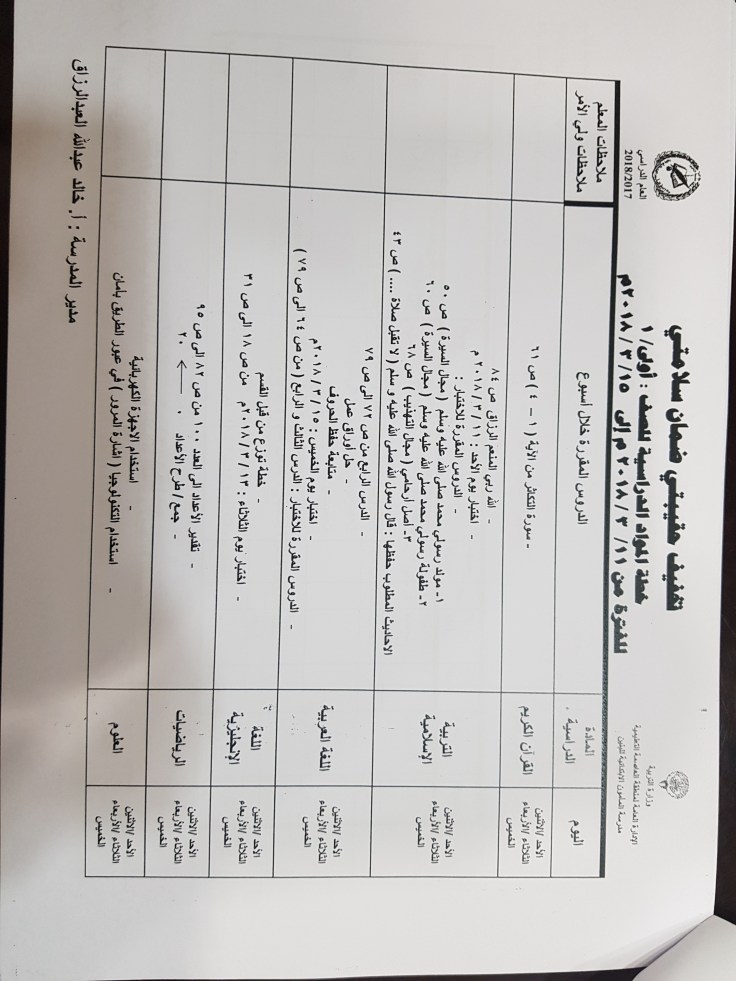 وزارة التربية
الإدارة العامة لمنطقة العاصمة التعليمية
مدرسة المأمون الابتدائية للبنين
العام الدراسي
2018/2017
تخفيف حقيبتي ضمان سلامتي
خطة المواد الدراسية للصف : أولى / ١
للفترة من ١١ / ٣ / ٢٠١٨ م إلى ١٥ / ٣ / ٢٠١٨م
اليوم
المادة الدراسية
الدروس المقررة خلال أسبوع
ملاحظات المعلم
ملاحظات ولي الأمر
الأحد /الاثنين
الثلاثاء /الأربعاء
الخميس
القرآن الكريم
- سورة التكاثر من الآية ( ١ – ٤ ) ص ٦١
الأحد /الاثنين
الثلاثاء /الأربعاء
الخميس
التربية
الإسلامية
- الله ربي المنعم الرزاق ص ٨٤
- اختبار يوم الأحد : ١١ / ٣ / ٢٠١٨ م
- الدروس المقررة للاختبار :
١- مولد رسولي محمد صلى الله عليه وسلم ( مجال السيرة ) ص ٥٠
٢- طفولة رسولي محمد صلى الله عليه وسلم ( مجال السيرة ) ص ٦٠
٣- أصل أرحامي ( مجال التهذيب ) ص ٦٨
الاحاديث المطلوب حفظها : قال رسول الله صلى الله عليه و سلم ( لا تقبل صلاة .... ) ص ٤٣
الأحد /الاثنين
الثلاثاء /الأربعاء
الخميس
اللغة العربية
- الدرس الرابع من ص ٧٢ الى ص ٧٩
- حل أوراق عمل
- متابعة حفظ الحروف
- اختبار يوم الخميس : ١٥ / ٣ / ٢٠١٨م
- الدروس المقررة للاختبار : الدرس الثالث و الرابع ( من ص ٦٤ الى ص ٧٩ )
الأحد /الاثنين
الثلاثاء /الأربعاء
الخميس
اللغة
الإنجليزية
- خطة توزع من قبل القسم
- اختبار يوم الثلاثاء : ١٣ / ٣ / ٢٠١٨م من ص ١٨ الى ص ٣١
الأحد /الاثنين
الثلاثاء /الأربعاء
الخميس
الرياضيات
- تقدير الأعداد الى العدد ١٠٠ من ص ٨٢ الى ص ٩٥
- جمع / طرح الأعداد ٠ ← ٢٠
الأحد /الاثنين
الثلاثاء /الأربعاء
الخميس
العلوم
- استخدام الاجهزة الكهربائية
- استخدام التكنولوجيا ( اشارة المرور ) في عبور الطريق بأمان
مدير المدرسة : أ. خالد عبدالله العبدالرزاق